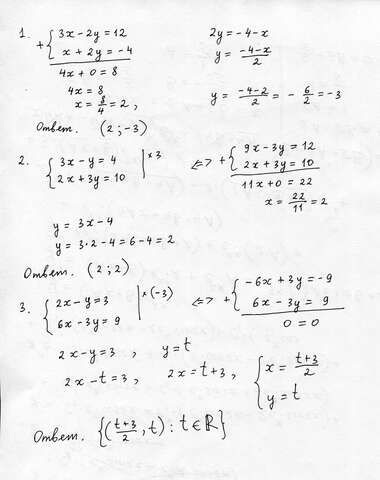 1. + { 3x - 2y = 12
x + 2y = -4
4x + 0 = 8
4x = 8
x = 8/4 = 2 ,
2y = -4 - x
y = (-4-x)/2
y = (-4-2)/2 = - 6/2 = -3
Ответ. (2 ; -3)
2. { 3x - y = 4 | × 3
2x + 3y = 10
<=> + { 9x - 3y = 12
2x + 3y = 10
11x + 0 = 22
x = 22/11 = 2
y = 3x - 4
y = 3•2 - 4 = 6 - 4 = 2
Ответ. (2 ; 2)
3. { 2x - y = 3 | × (-3)
6x - 3y = 9
<=> + { -6x + 3y = -9
6x - 3y = 9
0 = 0
2x - y = 3 , y = t
2x - t = 3 , 2x = t + 3 , { x = (t+3)/2
y = t
Ответ. {((t+3)/2 , t) : t ∈ ℝ}